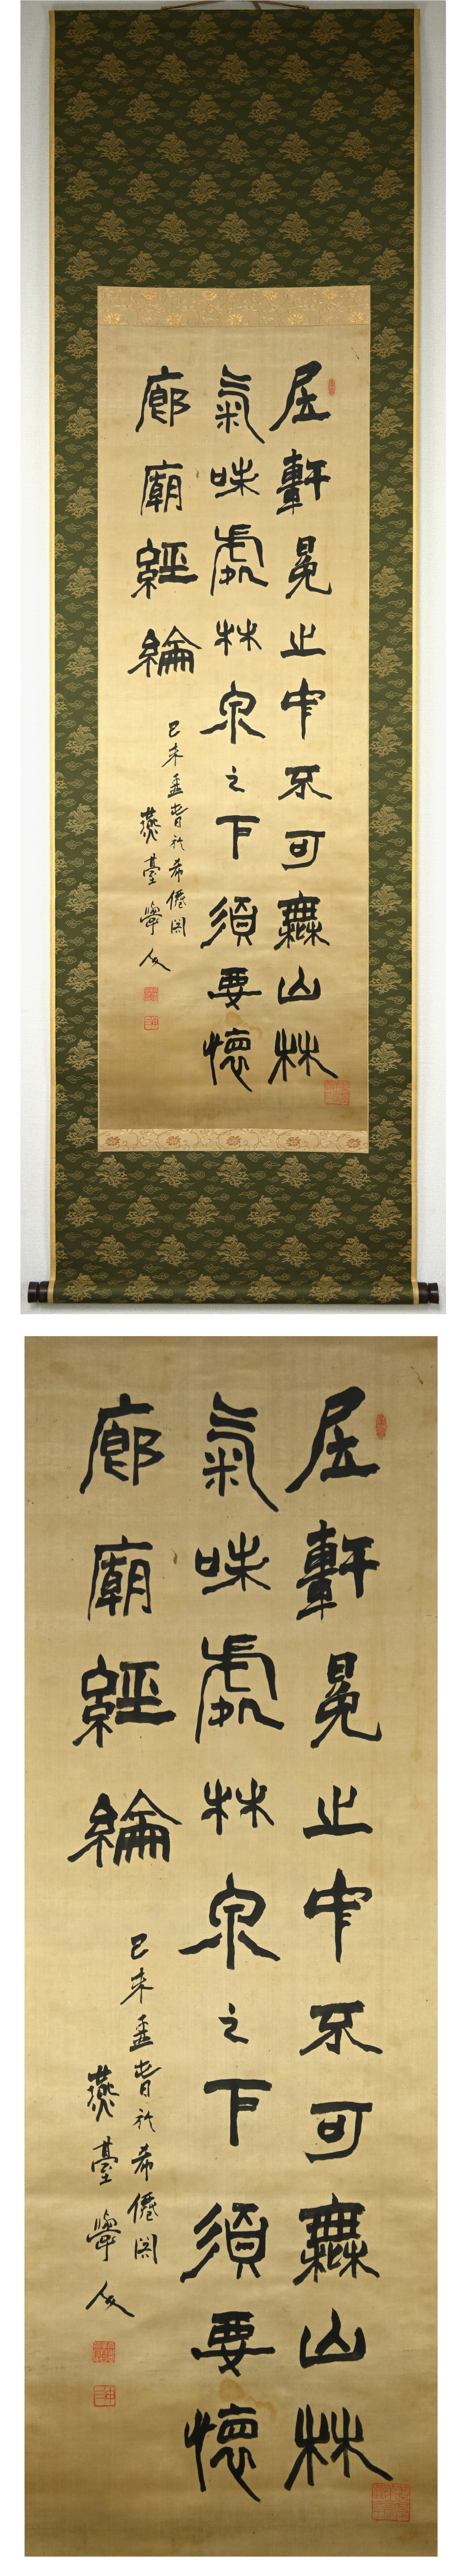 居軒冕止中不可無山林
氣味處林泉之下須要懷
廊廟經綸
己未孟旾於希僊閣
燕臺
居軒冕止中不可無山林
氣味處林泉之下須要懷
廊廟經綸
己未孟旾於希僊閣
燕臺